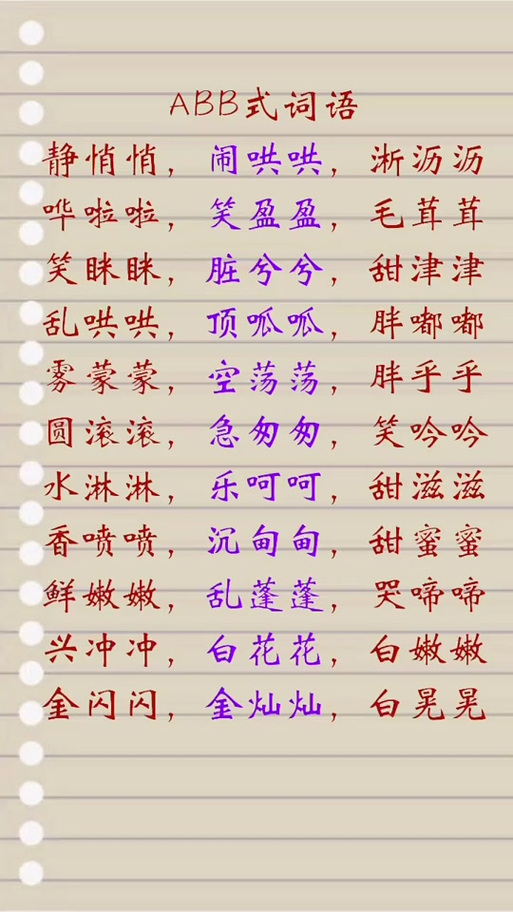 ABB式词语
静悄悄，闹哄哄，淅沥沥
哗啦啦，笑盈盈，毛茸茸
笑眯眯，脏兮兮，甜津津
乱哄哄，顶呱呱，胖嘟嘟
雾蒙蒙，空荡荡，胖乎乎
圆滚滚，急匆匆，笑吟吟
水淋淋，乐呵呵，甜滋滋
香喷喷，沉甸甸，甜蜜蜜
鲜嫩嫩，乱蓬蓬，哭啼啼
兴冲冲，白花花，白嫩嫩
金闪闪，金灿灿，白晃晃